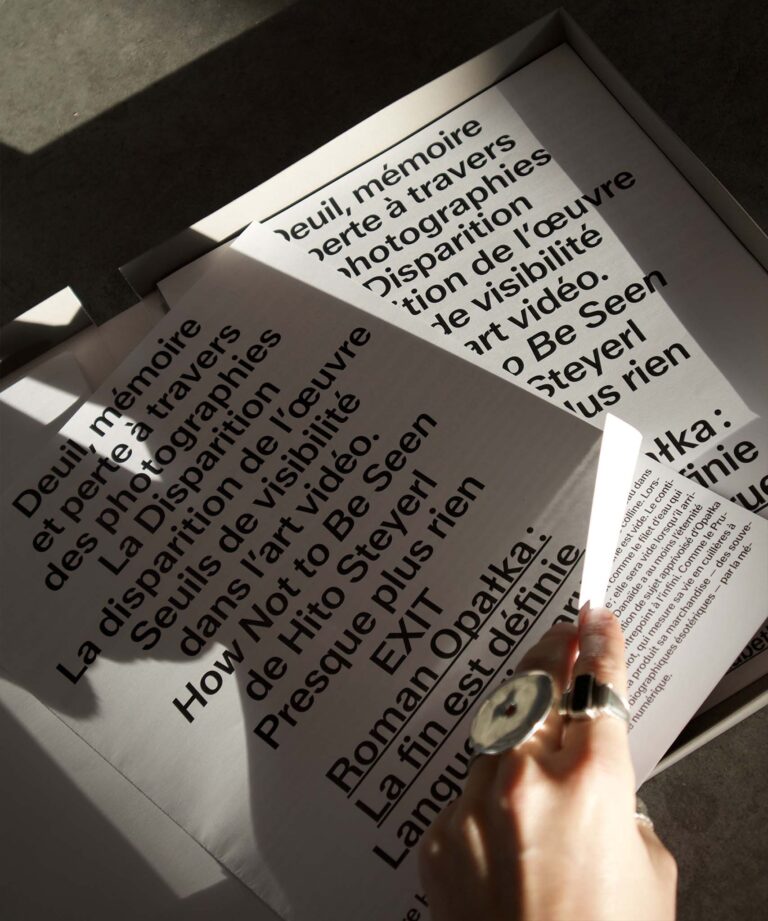 Deuil, mémoire
et perte à travers
des photographies
La Disparition
La disparition de l’œuvre
Seuils de visibilité
dans l’art vidéo.
How Not to Be Seen
de Hito Steyerl
Presque plus rien
EXIT
Roman Opałka :
La fin est définie
Langue
Deuil, mémoire
perte à travers
photographies
Disparition
de l’œuvre
de visibilité
art vidéo.
o Be Seen
Steyerl
plus rien
ałka :
définie
colline. Lors-
est vide. Le conti-
comme le filet d’eau qui
: elle sera vide lorsqu’il arri-
Danaïde a au moins l’éternité
tion de sujet apprivoisé d’Opałka
entrepoint à l’infini. Comme le Pru-
liot, qui mesure sa vie en cuillères à
a produit sa marchandise — des souve-
biographiques ésotériques — par la mé-
numérique.